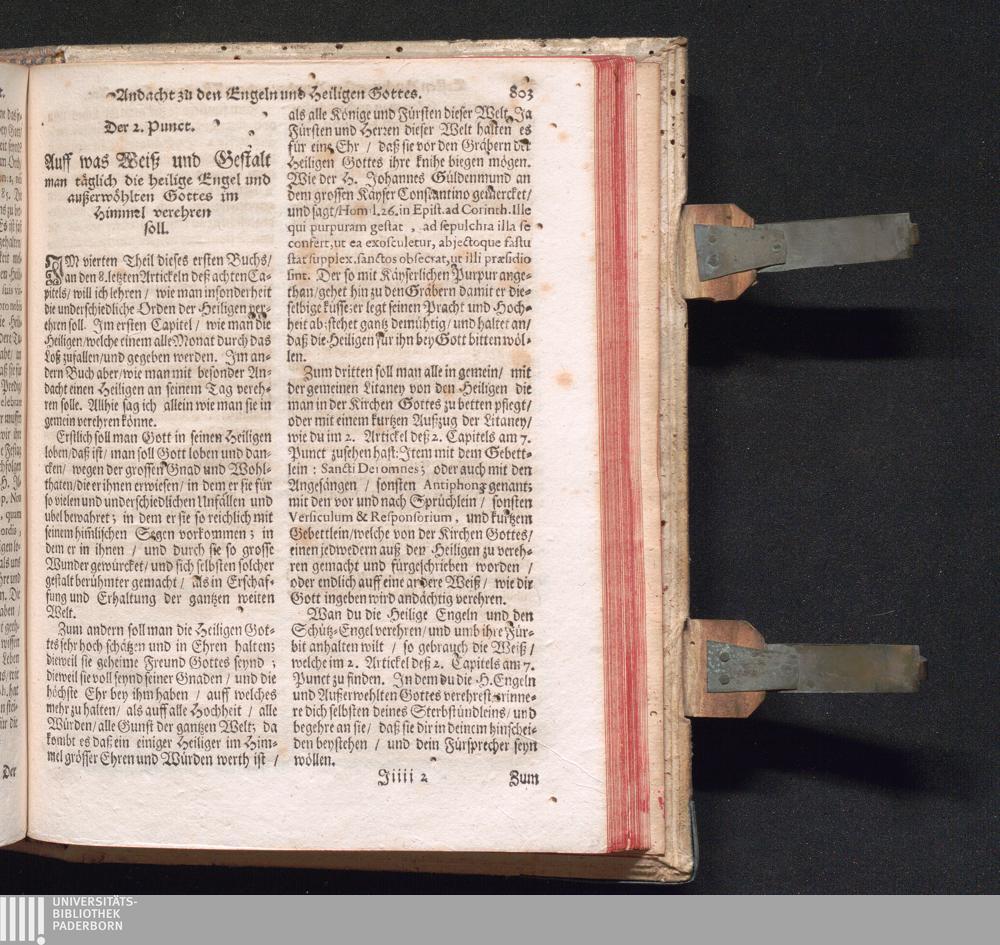 Andacht zu den Engeln und Heiligen Gottes. 803
Der 2. Punct.
Auff was Weiß und Gestalt
man täglich die heilige Engel und
außerwöhlten Gottes im
Himmel verehren
soll.
IM vierten Theil dieses ersten Buchs/
an den 8. letzten Artickeln deß achten Ca-
pitels/ will ich lehren / wie man insonderheit
die underschiedliche Orden der Heiligen ver-
ehren soll. Im ersten Capitel / wie man die
Heiligen/ welche einem alle Monat durch das
Loß zufallen/ und gegeben werden. Im an-
dern Buch aber/ wie man mit besonder An-
dacht einen Heiligen an seinem Tag vereh-
ren solle. Allhie sag ich allein wie man sie in
gemein verehren könne.
Erstlich soll man Gott in seinen Heiligen
loben/ daß ist/ man soll Gott loben und dan-
cken/ wegen der grossen Gnad und Wohl-
thaten/ die er ihnen erwiesen/ in dem er sie für
so vielen und underschiedlichen Unfällen und
ubel bewahret; in dem er sie so reichlich mit
seinem himlischen Segen vorkommen; in
dem er in ihnen / und durch sie so grosse
Wunder gewürcket/ und sich selbsten solcher
gestalt berühmter gemacht / als in Erschaf-
fung und Erhaltung der gantzen weiten
Welt.
Zum andern soll man die Heiligen Got-
tes sehr hoch schätzen und in Ehren halten;
dieweil sie geheime Freund Gottes seynd ;
dieweil sie voll seynd seiner Gnaden / und die
höchste Ehr bey ihm haben / auff welches
mehr zu halten/ als auff alle Hochheit / alle
Würden/ alle Gunst der gantzen Welt; da
kombt es daß ein einiger Heiliger im Him-
mel grösser Ehren und Würden werth ist /
als alle Könige und Fürsten dieser Welt. Ja
Fürsten und Herren dieser Welt halten es
für eine Ehr / daß sie vor den Gräbern der
Heiligen Gottes ihre knihe biegen mögen.
Wie der H. Johannes Güldenmund an
dem grossen Kayser Constantino gemercket/
und sagt/ Homil. 26. in Epist. ad Corinth. Ille
qui purpuram gestat , ad sepulchra illa se
confert, ut ea exosculetur, abjectoque fastu
stat supplex, sanctos obsecrat, ut illi præsidio
sint. Der so mit Käyserlichen Purpur ange-
than/ gehet hin zu den Gräbern damit er die-
selbige küsse: er legt seinen Pracht und Hoch-
heit ab: stehet gantz demühtig / und haltet an/
daß die Heiligen für ihn bey Gott bitten wöl-
len.
Zum dritten soll man alle in gemein/ mit
der gemeinen Litaney von den Heiligen die
man in der Kirchen Gottes zu betten pflegt/
oder mit einem kurtzen Außzug der Litaney/
wie du im 2. Artickel deß 2. Capitels am 7.
Punct zusehen hast: Item mit dem Gebett-
lein : Sancti Dei omnes; oder auch mit den
Angesängen / sonsten Antiphonæ genant;
mit den vor und nach Sprüchlein / sonsten
Versiculum & Responsorium, und kurtzem
Gebettlein/ welche von der Kirchen Gottes/
einen jedwedern auß den Heiligen zu vereh-
ren gemacht und fürgeschrieben worden /
oder endlich auff eine andere Weiß / wie dir
Gott ingeben wird andächtig verehren.
Wan du die Heilige Engeln und den
Schütz-Engel verehren/ und umb ihre Für-
bit anhalten wilt / so gebrauch die Weiß /
welche im 2. Artickel deß 2. Capitels am 7.
Punct zu finden. In dem du die H. Engeln
und Außerwehlten Gottes verehrest/ erinne-
re dich selbsten deines Sterbstündleins/ und
begehre an sie / daß sie dir in deinem hinschei-
den beystehen / und dein Fürsprecher seyn
wöllen.
Jiiii 2 Zum
Der
UNIVERSITÄTS-
BIBLIOTHEK
PADERBORN